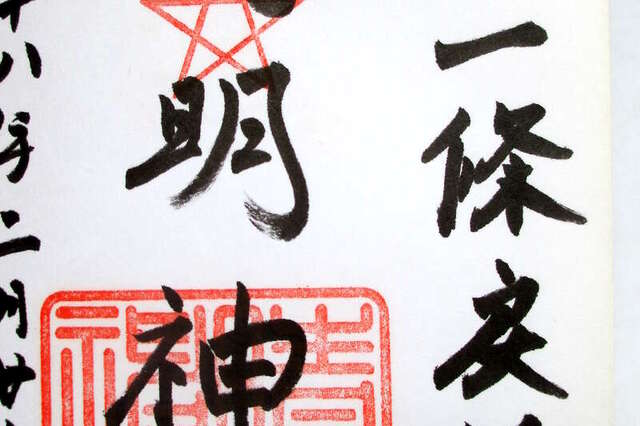 一條戻
明神
十八年二月廿